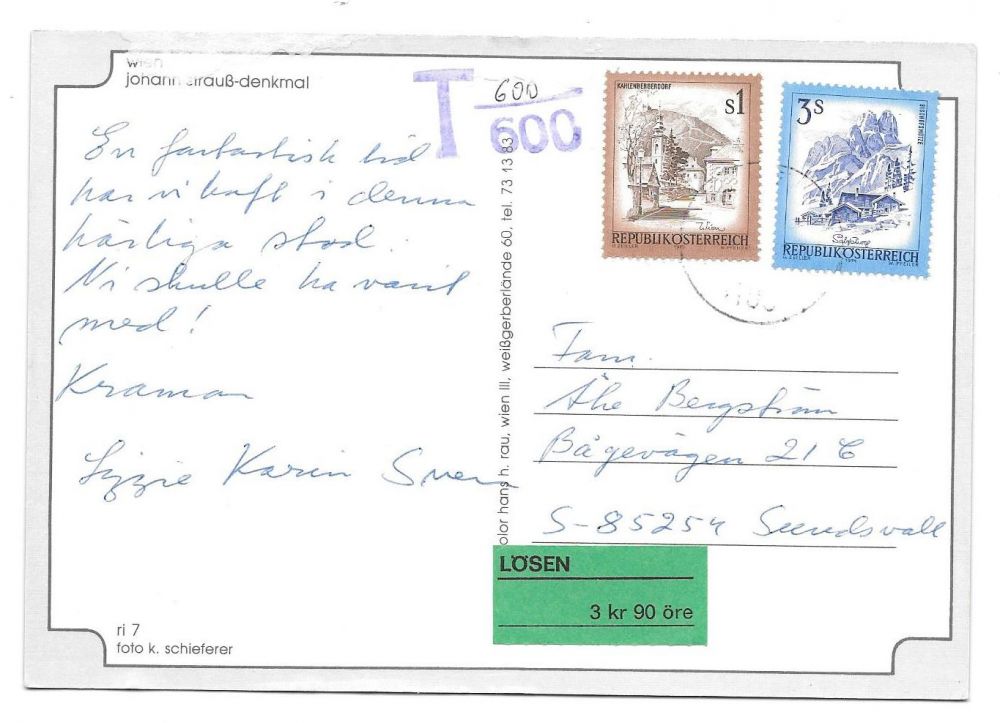 wien
johann strauß-denkmal
En fantastisk tid
har vi haft i denna
härliga stad.
Ni skulle ha varit
med!
Kramar
Lizzie Karin Sven
ri 7
foto k. schieferer
T 600
600
olor hans h. rau, wien III, weißgerberlände 60, tel. 73 13 83
KAHLENBERGERDORF
s1
Wien
REPUBLIK ÖSTERREICH
O. ZEILLER
W. PFEILER
3s
BISCHOFSMÜTZE
Salzburg
REPUBLIK ÖSTERREICH
O. ZEILLER
W. PFEILER
Fam.
Åke Bergström
Bågevägen 21 C
S-85254 Sundsvall
LÖSEN
3 kr 90 öre